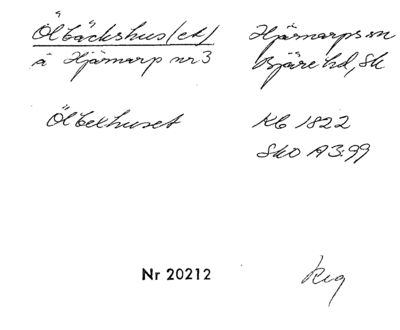 Ölbäckshus(et) Hjärnarps sn
å Hjärnarp nr 3 Bjäre hd, Sk
Ölbekhuset Kb 1822
SkO A3:99
Nr 20212 Reg